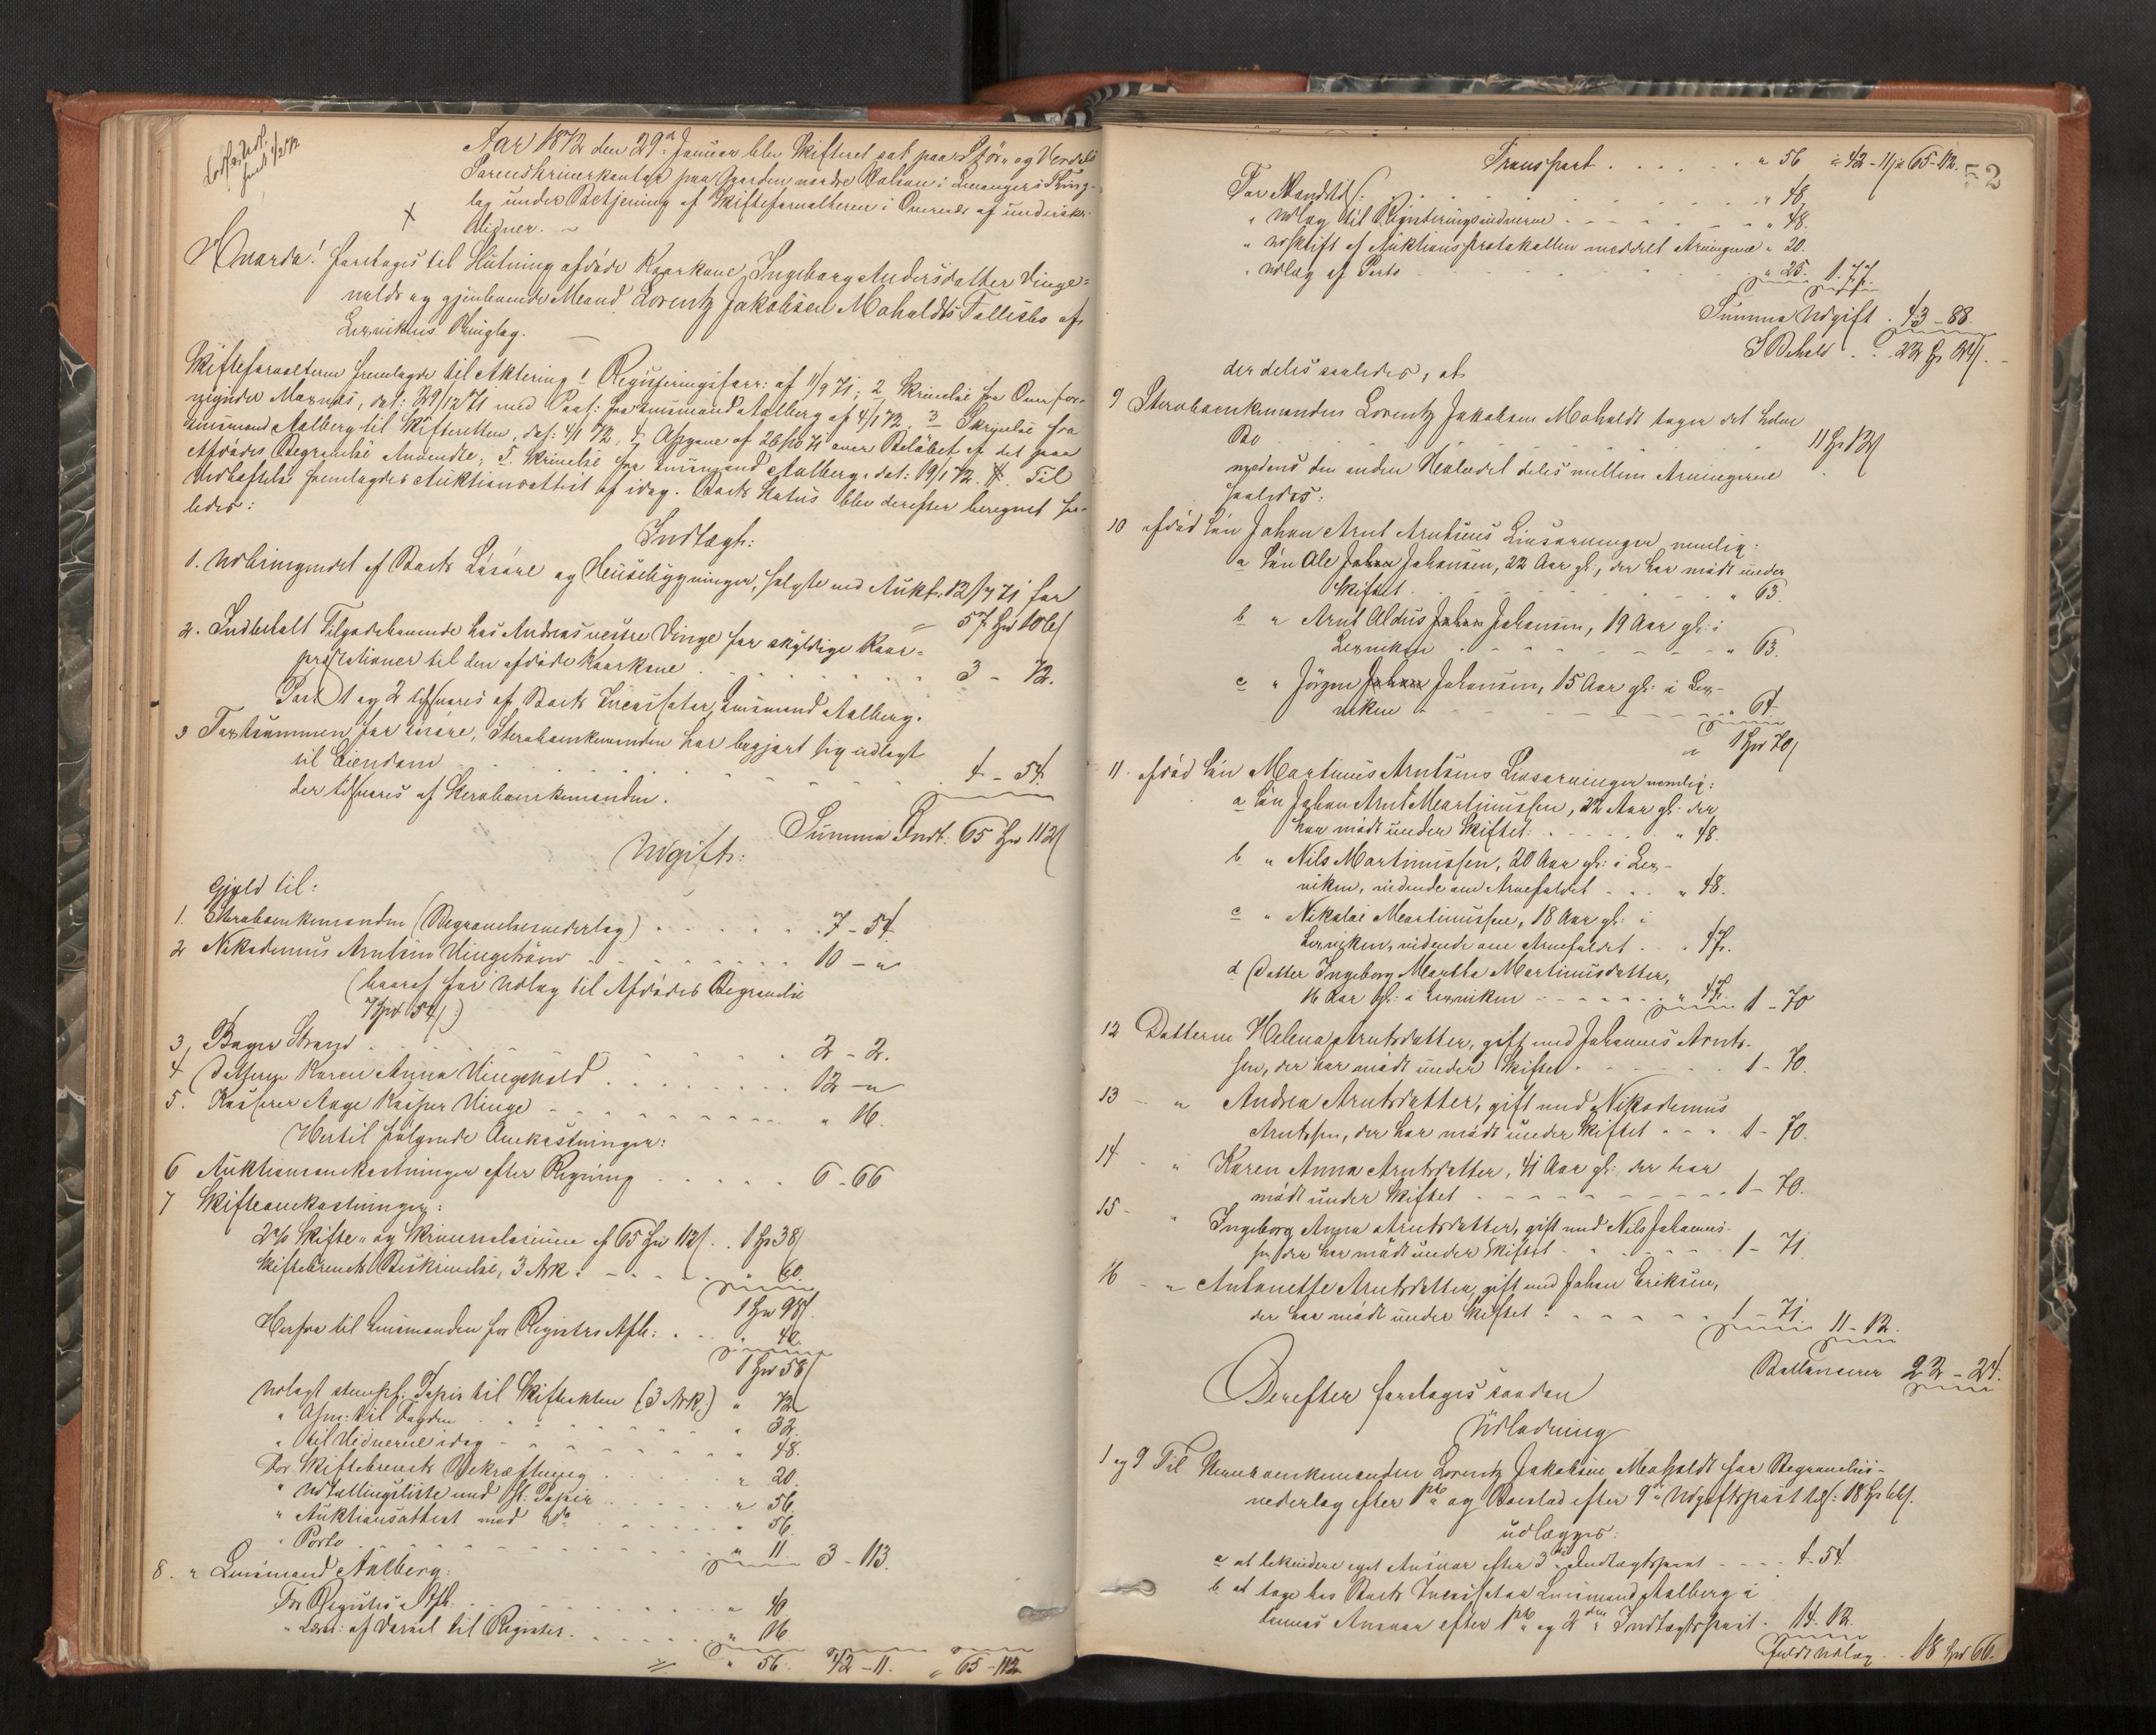 Aar 1872 den 29de Januar blev Skifteret sat paa Stør- og Værdals
Sorenskriverkontor paa Gaarden nordre i Levangers Thing-
lag under Betjening af Skifteforvalteren i Overvær af underskr:
Vidner.
Hvorda! foretages til Slutning afdøde Kaarkone Ingeborg Andersdatter Vinge-
volds og gjenlevende Mand Lorentz Jakobsen Moholdts Fællesbo af
Lexvikens Thinglag.
Skifteforvalteren fremlagde til Aktering 1 Registeringsforr: af 11/9 71; 2 Skrivelse fra Overfor-
mynder Moxnes, dat: 29/12 71 med Paat: fra Lensmand Aalberg af 4/1 72, 3 Skrivelse fra
Lensmand Aalberg til Skifteretten, dat: 4/1 72, 4 Opgave af 26/10 71 over Beløbet af det paa
Afdødes Begravelse Anvendte; 5 Skrivelse fra Lensmand Aalberg, dat: 19/1 72. Til
Vedhæftelse fremlagdes Auktionsattest af idag. Boets Status blev derefter beregnet saa-
ledes:
Indtægt:
1. Udbringendet af Boets Løsøre og Huusebygninger, solgte ved Aukt: 12/9 71 for
57 Spd 106 ß
2. Indbetalt Tilgodehavende hos Andreas vestre Vinge for skyldige Kaar-
præstationer til den afdøde Kaarkone . . . 3 - 72.
Post 1 og 2 tilsvares af Boets Incassator, Lensmand Aalberg.
3 Taxtsummen for Løsøre, Sterbøenkemanden har begjært sig udlagt
til Eiendom . . . 4 - 54.
der tilsvares af Sterboenkemanden.
Summa Indt: 65 Spd 112 ß
Udgift:
Gjæld til:
1. Sterboenkemanden (Begravelsesvederlag) . . . 7 - 54.
2 Nikodemus Arntsen Vingehaug . . . 10 - "
(hvoraf for Udlæg til Afdødes Begravelse
7 Spd 54 ß)
3, Bager Strand . . . 2 - 2.
4 Datteren Karen Anna Vingevold . . . 12 - "
5. Kasserer Aage Kasper Vinge . . . " 16.
Hertil følgende Omkostninger:
6 Auktionsomkostninger efter Regning . . . 6 - 66
7 Skifteomkostninger:
2 % Skifte- og Skriversalarium af 65 Spd 112 ß . . 1 Sp 38 ß
Skiftebrevets Beskrivelse, 3 Ark . . . " 60.
1 Spd 98 ß
Herfra til Lensmanden for Registrs Afh: . . . " 40.
1 Spd 58 ß
Udlagt stempl. Papir til Skifteakten (3 Ark) " 72
" Afm: til Fogden . . . " 32.
" til Vidnerne idag . . . " 48.
For Skiftebrevets Bekræftning . . . " 20.
" Udtællingsliste med st: Papir . . . " 56.
" Auktionsattest med Do . . . " 56.
" Porto . . . " 11. 3 - 113.
8. " Lensmand Aalberg:
For Registrs Afh: . . . " 40
" Lev: af Varsel til Registr. . . . " 16
" 56. 42 - 11. " 65 - 112
52
Transport . . . " 56 " 42 - 11 " 65 - 112.
For Mandtil: . . . " 48.
" Udlæg til Registeringsvidnerne . . . " 48.
" Udskrift af Auktionsprotokollen meddelt Arvingerne " 20.
" Udlæg af Porto . . . " 25. 1. 77.
Summa Udgift . 43 - 88.
I Behold . . 22 Sp 24 ß.
der deles saaledes, at
9 Sterboenkemanden Lorentz Jakobsen Moholdt tager det halve
Bo . . . 11 Sp 12 ß
medens den anden Halvdel deles mellem Arvingerne
saaledes:
10 afdød Søn Johan Arnt Arntsens Livsarvinger nemlig:
a Søn Ole Johan Johansen, 22 Aar gl:, der har mødt under
Skiftet . . . " 63.
b " Arnt Aldius Johan Johansen, 19 Aar gl: i
Lexviken . . . " 63.
c " Jørgen Johan Johansen, 15 Aar gl: i Lex-
viken . . . " 64.
" 1 Spd 70 ß
11. afdød Søn Martinus Arntsens Livsarvinger nemlig:
a Søn Johan Arnt Martinussen, 22 Aar gl: der
har mødt under Skiftet: . . . " 48.
b " Nils Martinussen, 20 Aar gl: i Lex-
viken, vidende om Arvefaldet . . . " 48.
c " Nikolai Martinussen, 18 Aar gl: i
Lexviken, vidende om Arvefaldet . . " 47.
d Datter Ingeborg Martha Martinusdatter,
16 Aar gl: i Lexviken . . . " 47. 1 - 70
12 Datteren Helena Arntsdatter, gift med Johannes Arnt-
sen, der har mødt under Skiftet . . . 1 - 70.
13 - " Andrea Arntsdatter, gift med Nikodemus
Arntsen, der har mødt under Skiftet . . . 1 - 70.
14 - " Karen Anna Arntsdatter, 41 Aar gl: der har
mødt under Skiftet . . . 1 - 70.
15 - " Ingeborg Anna Arntsdatter, gift med Nils Johannes-
sen der har mødt under Skiftet . . . 1 - 71
16 - " Antonette Arntsdatter, gift med Johan Eriksen,
der har mødt under Skiftet . . . 1 - 71. 11 - 12.
Ballancerer 22 - 24.
Derefter foretages saadan
Udlodning
1 og 9 Til Sterboenkemanden Lorentz Jakobsen Moholdt for Begravelses-
vederlag efter 1ste og Boeslod efter 9de Udgiftspost tils: 18 Sp 66 ß.
udlægges:
a at likvidere eget Ansvar efter 3die Indtægtspost . . . 4 - 54
b at tage hos Boets Incassator Lensmand Aalberg i
dennes Ansvar efter 1ste og 2den Indtægtspost . 14. 12.
Fuldt Udlæg . . 18 Spd 66.